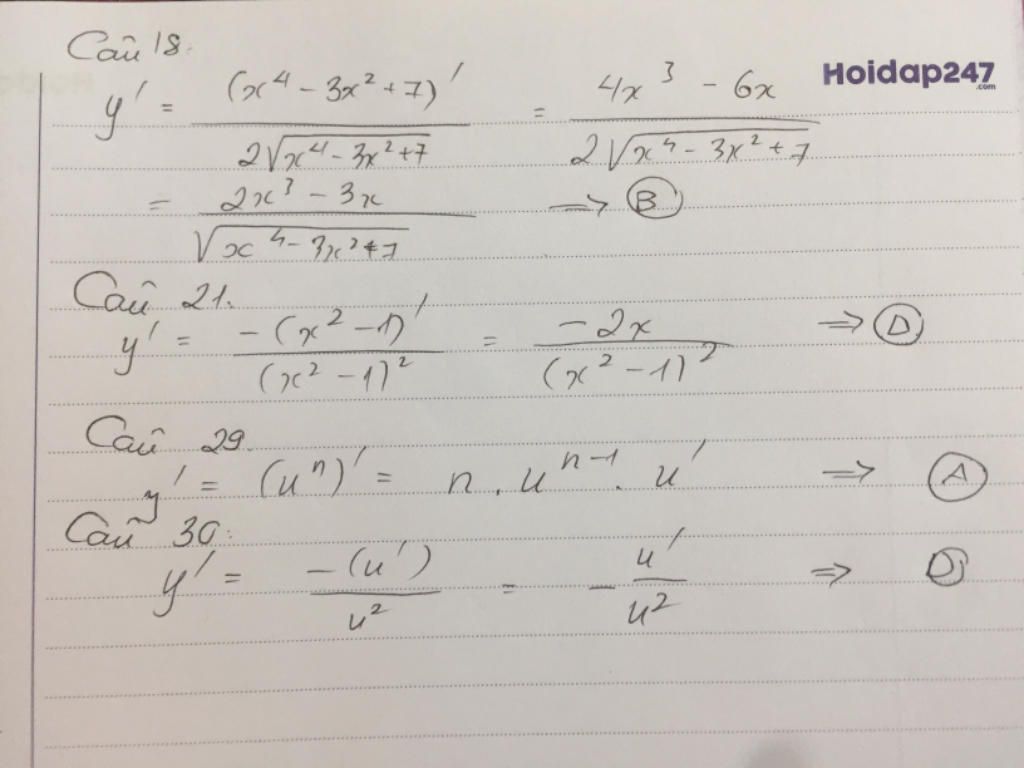 Câu 18:
Hoidap247.com
y' = (x⁴ - 3x² + 7)' / 2√(x⁴ - 3x² + 7) = 4x³ - 6x / 2√(x⁴ - 3x² + 7)
= 2x³ - 3x / √(x⁴ - 3x² + 7) => B
Câu 21.
y' = -(x² - 1)' / (x² - 1)² = -2x / (x² - 1)² => D
Câu 29.
y' = (uⁿ)' = n . uⁿ⁻¹ . u' => A
Câu 30:
y' = -(u') / u² = - u' / u² => D